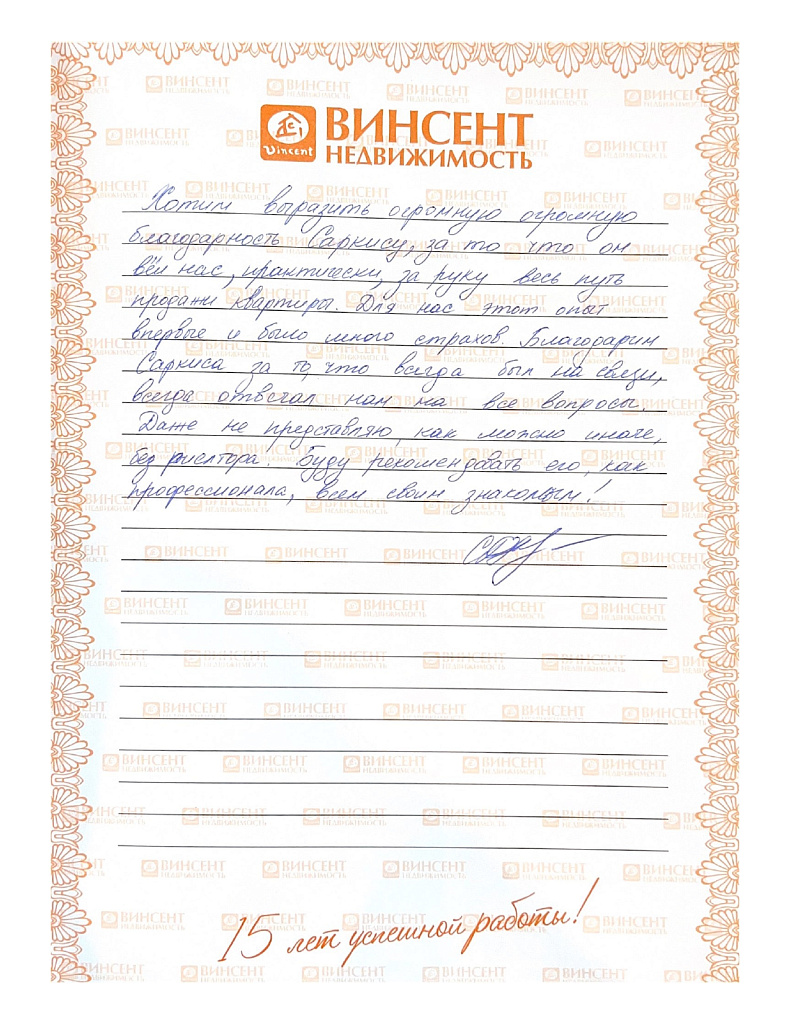 Vincent
ВИНСЕНТ
НЕДВИЖИМОСТЬ
Хотим выразить огромную огромную
благодарность Саркису, за то что он
вёл нас, практически, за руку весь путь
продажи квартиры. Для нас этот опыт
впервые и было много страхов. Благодарим
Саркиса за то, что всегда был на связи,
всегда отвечал нам на все вопросы.
Даже не представляю, как можно иначе,
без риелтора. Буду рекомендовать его, как
профессионала, всем своим знакомым!
15 лет успешной работы!